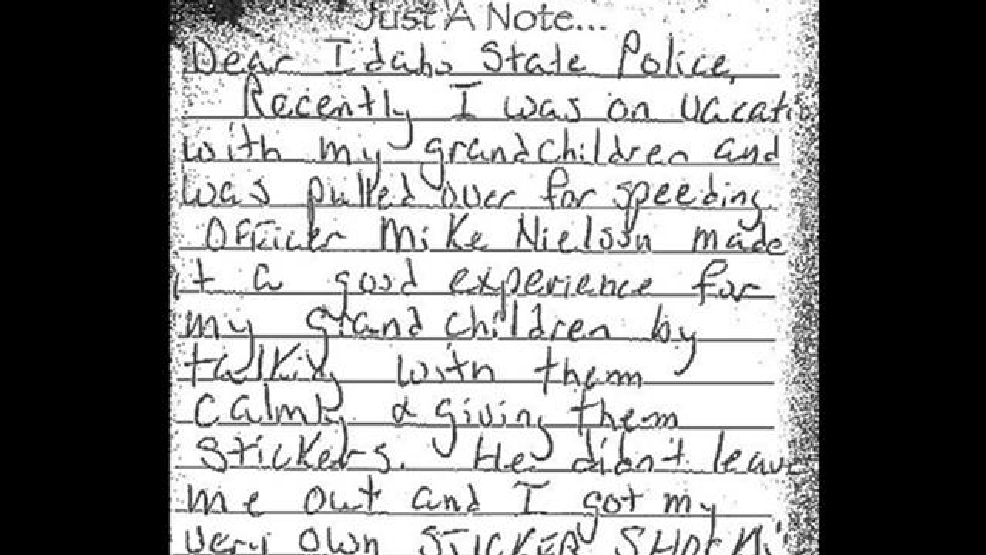 Just A Note...
Dear Idaho State Police,
Recently I was on vacatio
with my grandchildren and
was pulled over for speeding.
Officer Mike Nielson made
it a good experience for
my grandchildren by
talking with them
calmly & giving them
stickers. He didn't leave
me out and I got my
very own STICKER